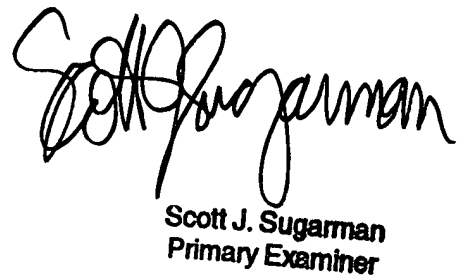 Scott J Sugarman
Scott J. Sugarman
Primary Examiner